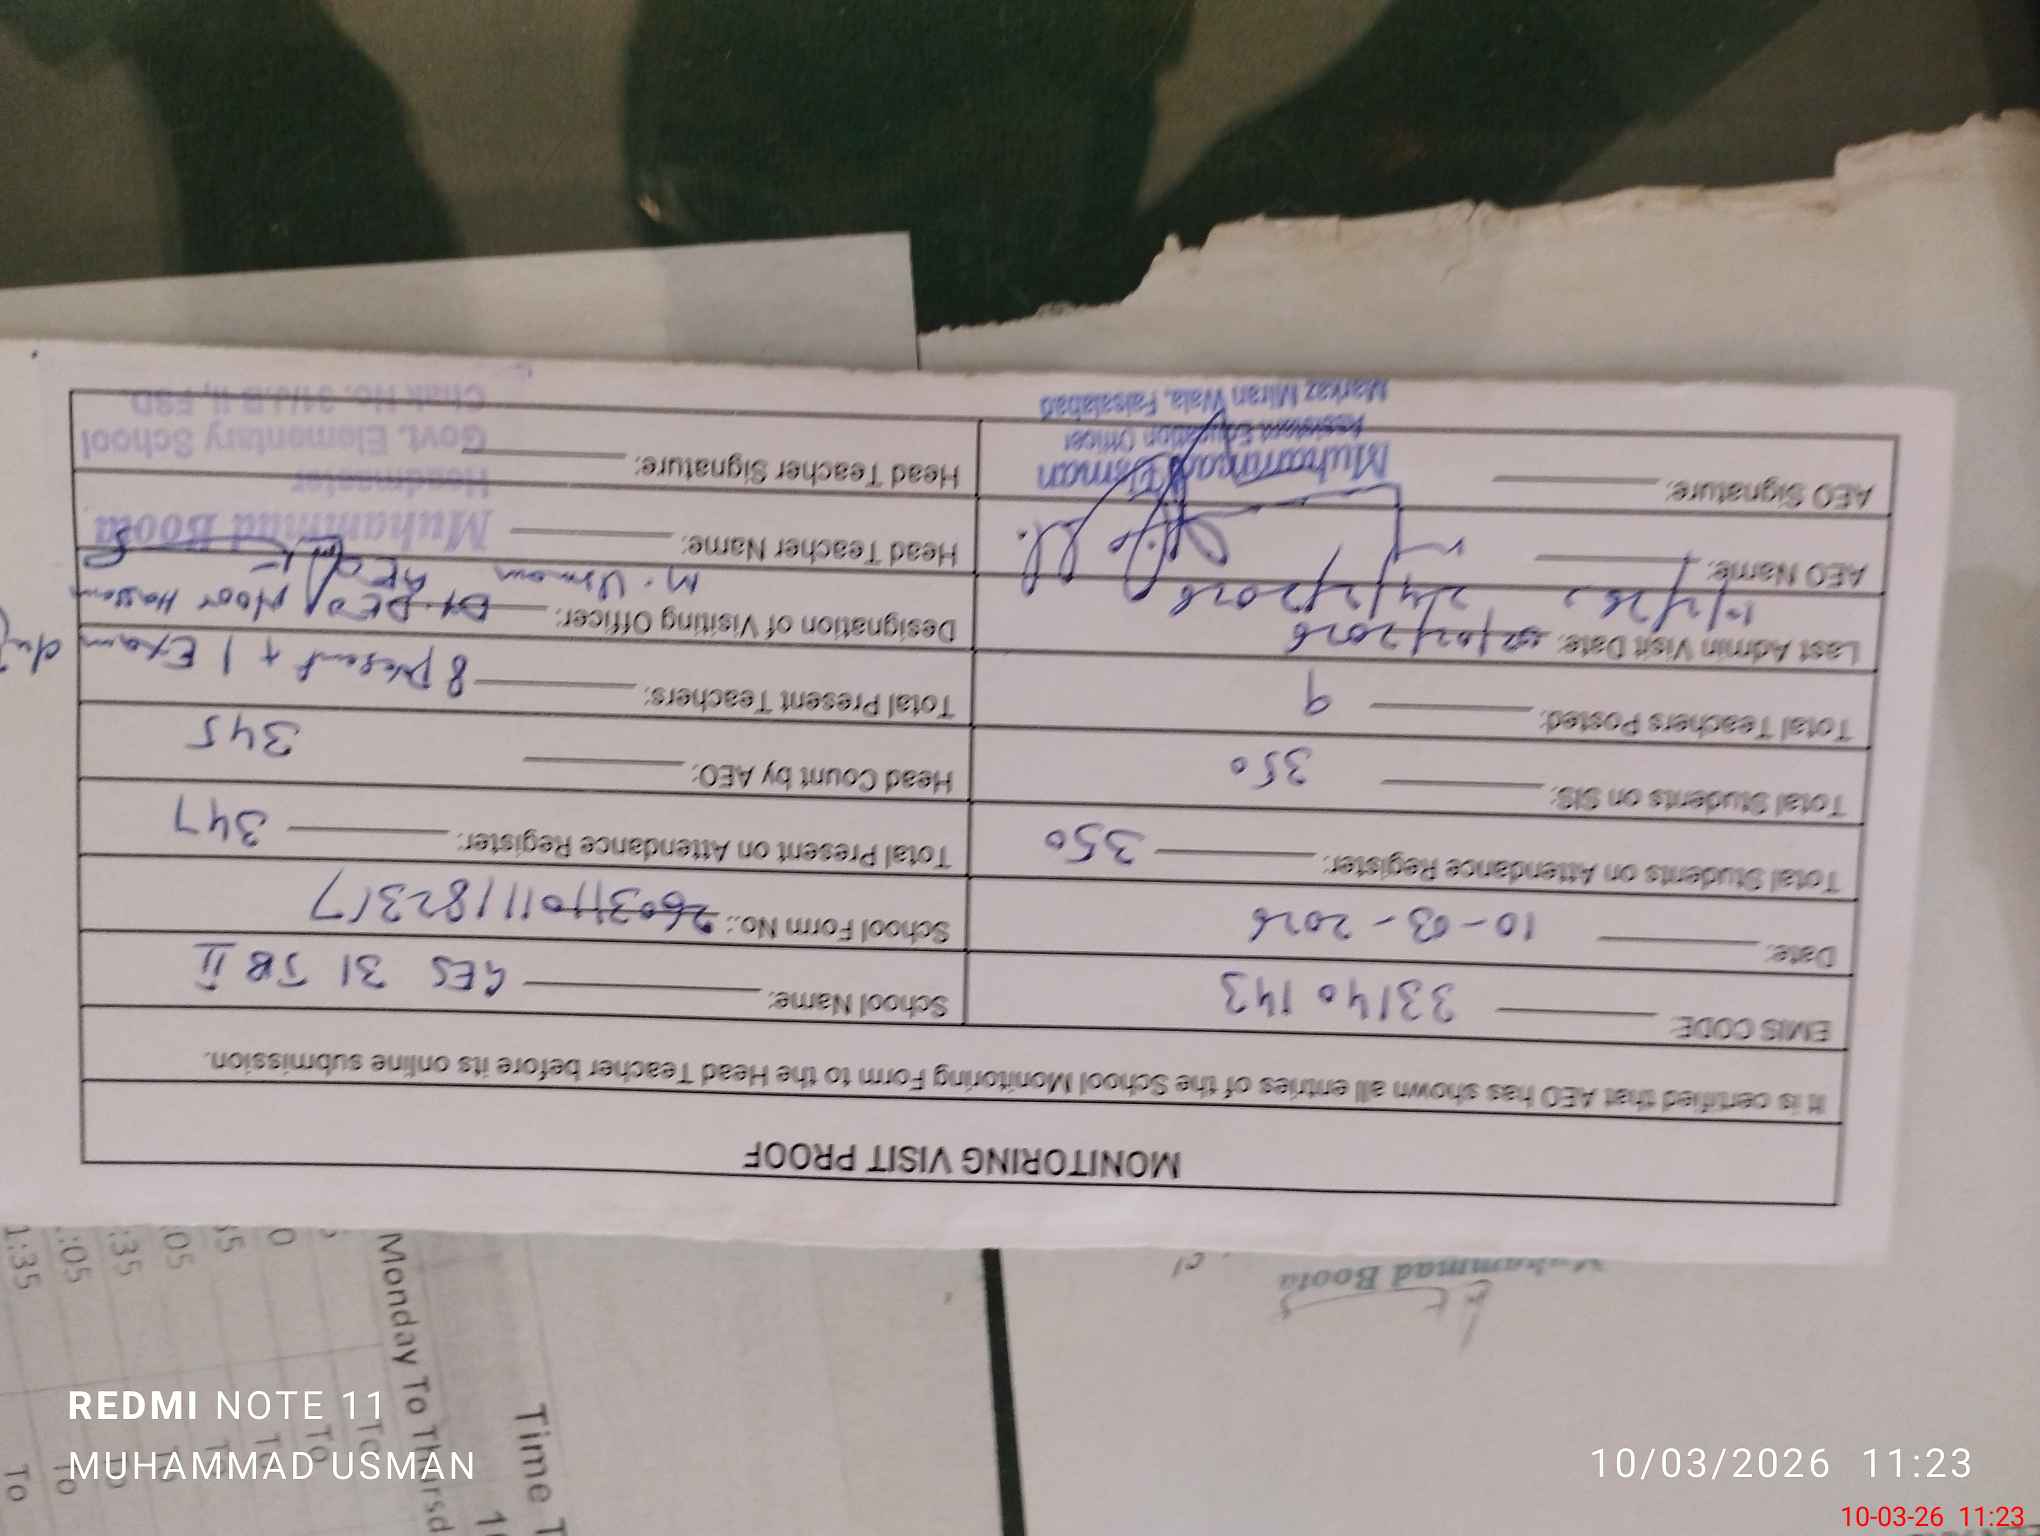 MONITORING VISIT PROOF
It is certified that AEO has shown all entries of the School Monitoring Form to the Head Teacher before its online submission.
EMIS CODE 33140143
School Name: GES 31 JB II
Date: 10-03-2026
School Form No.: 2603110111182317
Total Students on Attendance Register: 350
Total Present on Attendance Register: 347
Total Students on SIS: 350
Head Count by AEO: 345
Total Teachers Posted: 9
Total Present Teachers: 8 Present + 1 Exam
Last Admin Visit Date: 02/02/2026
24/2/2026
Designation of Visiting Officer: Dy. DEO Noor Hassan
M. Usman AEO
AEO Name:
Head Teacher Name: Muhammad Boota
AEO Signature:
Muhammad Usman
Assistant Education Officer
Markaz Miran Wala, Faisalabad
Head Teacher Signature:
Headmaster
Govt. Elementary School
Chak No. 31/J.B II, FSD.
Muhammad Boota
Time
Monday To
1:35
:05
:35
:05
To
To
To
REDMI NOTE 11
MUHAMMAD USMAN
10/03/2026 11:23
10-03-26 11:23